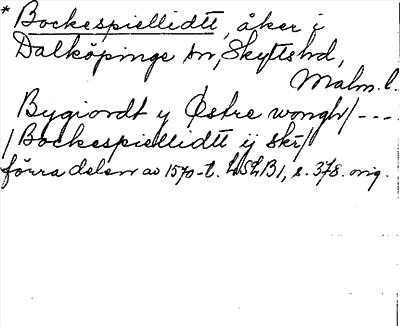 * Bockespiellidtt, åker i
Dalköpinge sn, Skytts hd,
Malm. l.
Bygiordt y Østre wongh/ - - -
/ Bockespiellidtt ij skr/
förra delen av 1570-t. LSLB1, s. 378. orig.